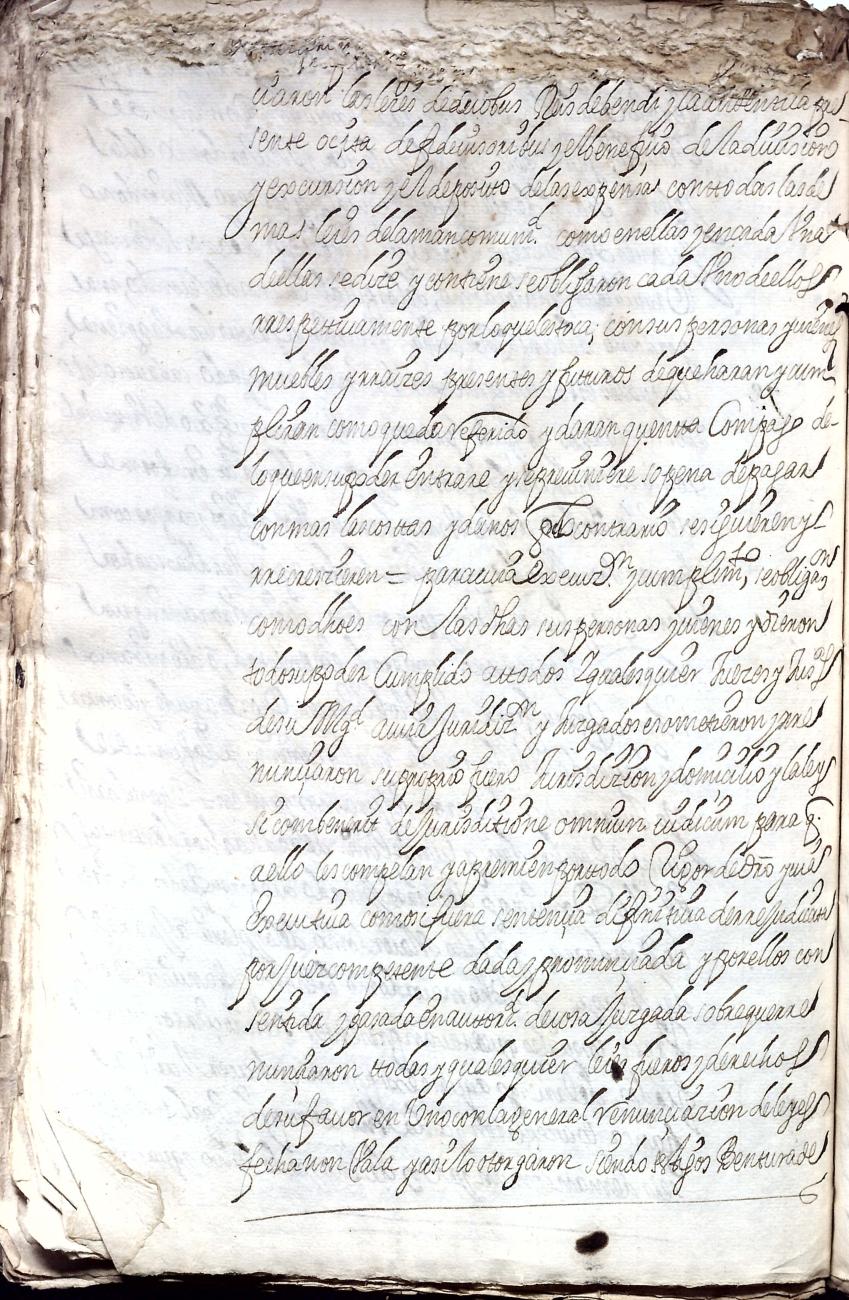 ciaron las leies de duobus Reis debendi y la autentica pre
sente ocita de fidejusoribus y el beneficio de la diuision
y excursion y el deposito de las expensas con todas las de
mas leies de la mancomund. como en ellas y en cada Una
de ellas se dize y contiene se obligaron cada Uno de ellos
rrespectiuamente por lo que les toca, con sus personas y uienes
muebles y rraizes presentes y futuros de que haran y cum
pliran como queda referido y daran quenta Con pago de
lo que en su poder entrare y rrepreuiniere so pena de pagar
con mas las costas y daños q de lo contrario se siguieren y
rrecrecieren = para cuia execuzon. y cumplimto, se obligaron
como dhoes con las dhas sus personas y uienes y dieron
todo su poder Cumplido a todos y qualesquier Juezes y Jusas
de su Magd. a cuia Jurisdizn y Juzgado se sometieron y rre
nunçiaron su propio fuero Jurisdizion y domicilio y la ley
si combenerit de Jurisditione omnium iudicum para q.
a ello les compelan y apremien por todo Rigor de dro y uia
executiua como si fuera sentençia difinitiua de rre Judicata
por Juez competente dada y pronunçiada y por ellos con
sentida y pasada en autord. de cosa Juzgada sobre que rre
nunciaron todas y qualesquier leies fueros y derechos
de su fauor en Uno con la general rrenunciazion de leyes
fecha non Vala y asi lo otorgaron siendo testigos Bentura de